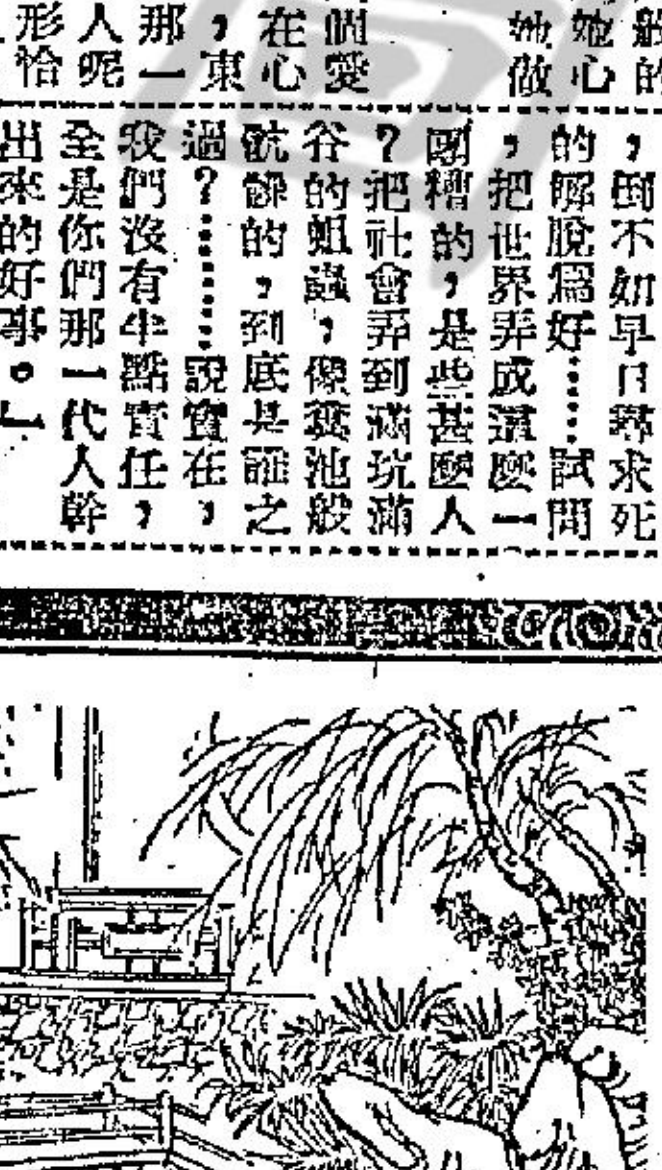 般的
她心
她做
個愛
在心
，東
那一
人呢
形恰
，倒不如早日尋求死
的解脫爲好……試問
，把世界弄成這麼一
團糟的，是些甚麼人
？把社會弄到滿坑滿
谷的蛆蟲，像糞池般
骯髒的，到底是誰之
過？……說實在，
我們沒有半點責任，
全是你們那一代人幹
出來的好事。」